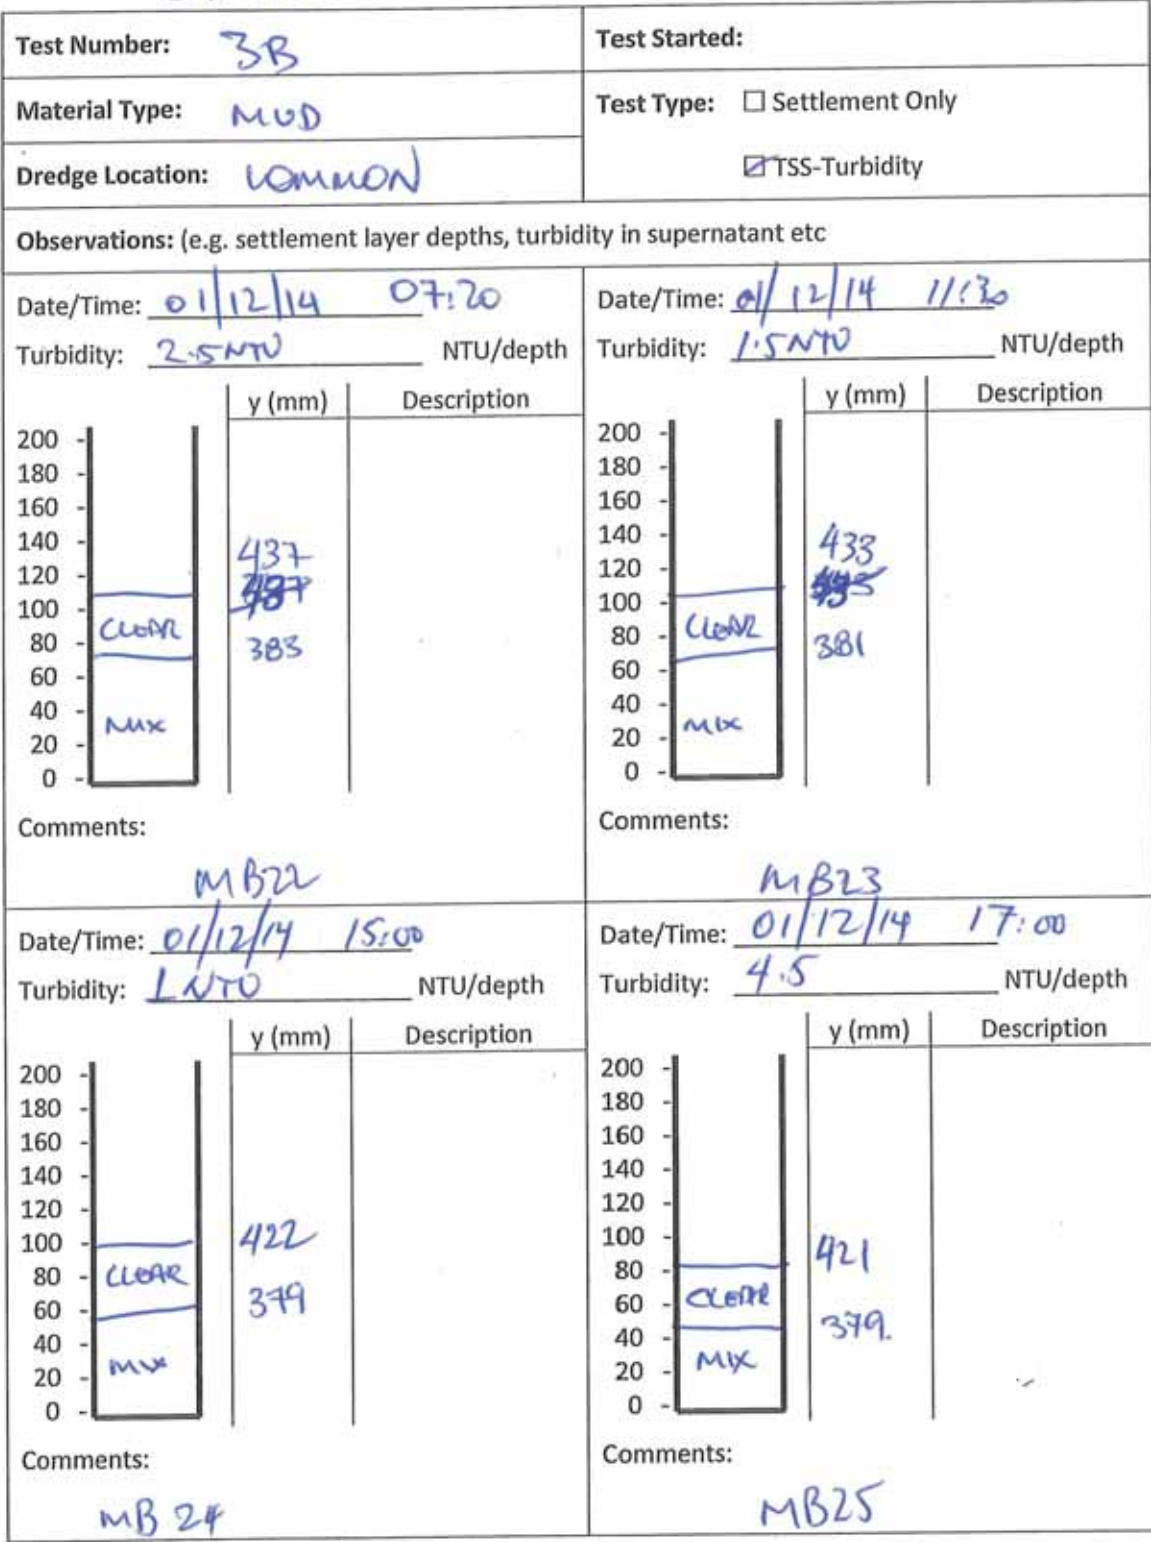 Test Number: 3B
Test Started:
Material Type: MUD
Test Type: ☐ Settlement Only
Dredge Location: COMMON
☑ TSS-Turbidity
Observations: (e.g. settlement layer depths, turbidity in supernatant etc
Date/Time: 01/12/14 07:20
Turbidity: 2.5 NTU NTU/depth
y (mm) Description
200
180
160
140
120
100
80
60
40
20
0
437
383
CLEAR
MIX
Comments:
MB22
Date/Time: 01/12/14 11:30
Turbidity: 1.5 NTU NTU/depth
y (mm) Description
200
180
160
140
120
100
80
60
40
20
0
433
381
CLEAR
MIX
Comments:
MB23
Date/Time: 01/12/14 15:00
Turbidity: 1 NTU NTU/depth
y (mm) Description
200
180
160
140
120
100
80
60
40
20
0
422
379
CLEAR
MIX
Comments:
MB 24
Date/Time: 01/12/14 17:00
Turbidity: 4.5 NTU/depth
y (mm) Description
200
180
160
140
120
100
80
60
40
20
0
421
379.
CLEAR
MIX
Comments:
MB25